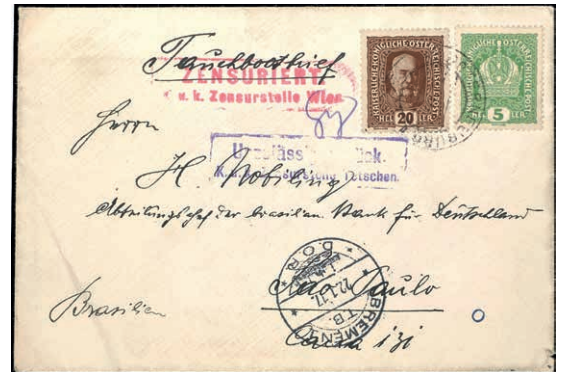 Tauchbootbrief
ZENSURIERT
k. u. k. Zensurstelle Wien
KAISERLICHE KÖNIGLICHE ÖSTERREICHISCHE POST
HEL 20 LER
KAISERLICHE KÖNIGLICHE ÖSTERREICHISCHE POST
HEL 5 LER
Herrn
Unzulässig. Zurück.
K.u.k. Zensurstelle Tetschen.
H. Nobiling
Abteilungschef der brasilian. Bank für Deutschland
BREMEN
T.B.
Sao Paulo
Brasilien